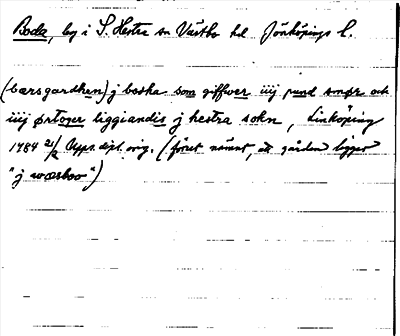 Boda, by i S. Hestra sn Västbo hd Jönköpings l.
(barsgardhen) j boska som giffwer iiij pund smør och
iiij ørtoger liggiandis j hestra sokn, Linköping
1484 21/2 Upps. dipl. orig. (förut nämnt, att gården ligger
"j wæsboo")